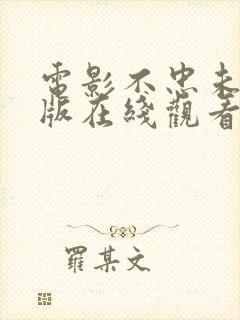 電影不忠未
版在綫觀看
羅某文